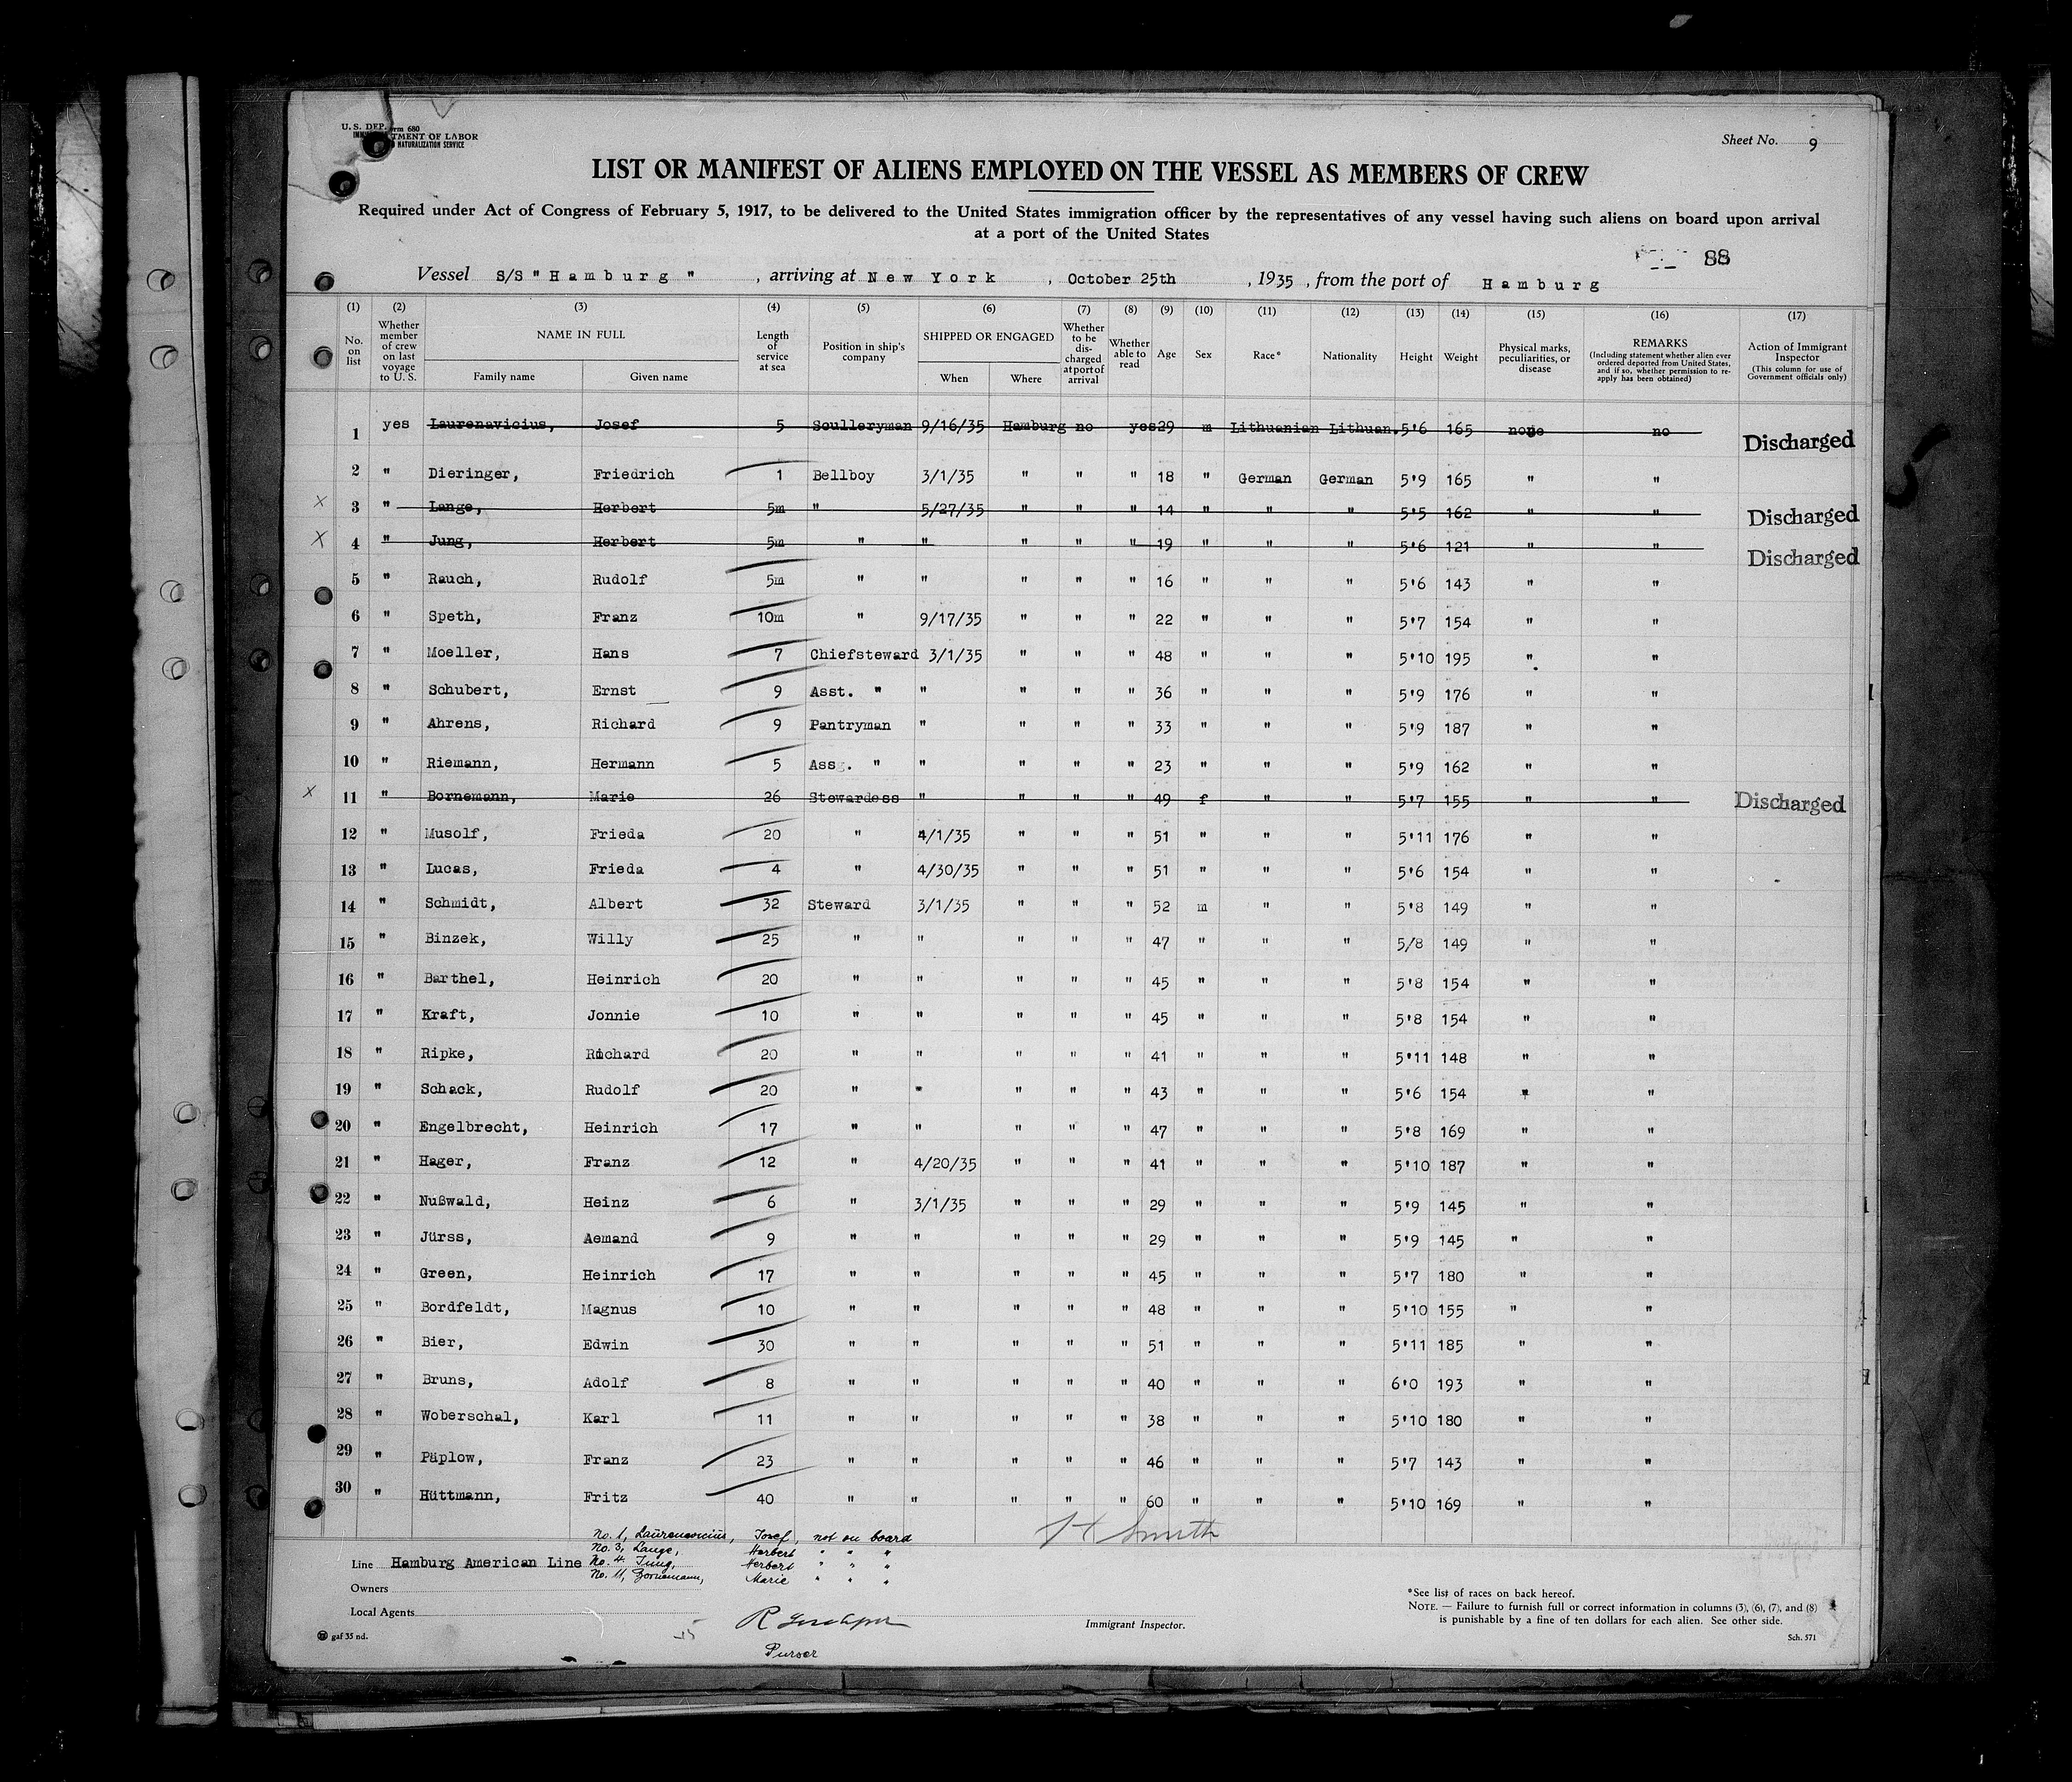 U. S. DEP
rm 680
TMENT OF LABOR
NATURALIZATION SERVICE
Sheet No. 9
LIST OR MANIFEST OF ALIENS EMPLOYED ON THE VESSEL AS MEMBERS OF CREW
Required under Act of Congress of February 5, 1917, to be delivered to the United States immigration officer by the representatives of any vessel having such aliens on board upon arrival
at a port of the United States
88
Vessel S/S "Hamburg", arriving at New York, October 25th, 1935, from the port of Hamburg
(1) (2) (3) (4) (5) (6) (7) (8) (9) (10) (11) (12) (13) (14) (15) (16) (17)
No. on list
Whether member of crew on last voyage to U. S.
NAME IN FULL
Family name
Given name
Length of service at sea
Position in ship's company
SHIPPED OR ENGAGED
When
Where
Whether to be discharged at port of arrival
Whether able to read
Age
Sex
Race*
Nationality
Height
Weight
Physical marks, peculiarities, or disease
REMARKS
(Including statement whether alien ever ordered deported from United States, and if so, whether permission to reapply has been obtained)
Action of Immigrant Inspector
(This column for use of Government officials only)
1 yes Laurenavicius, Josef 5 Sculleryman 9/16/35 Hamburg no yes 29 m Lithuanian Lithuan. 5'6 165 none no Discharged
2 " Dieringer, Friedrich 1 Bellboy 3/1/35 " " " 18 " German German 5'9 165 " "
X 3 " Lange, Herbert 5m " 5/27/35 " " " 14 " " " 5'5 162 " " Discharged
X 4 " Jung, Herbert 5m " " " " " 19 " " " 5'6 121 " " Discharged
5 " Rauch, Rudolf 5m " " " " " 16 " " " 5'6 143 " "
6 " Speth, Franz 10m " 9/17/35 " " " 22 " " " 5'7 154 " "
7 " Moeller, Hans 7 Chiefsteward 3/1/35 " " " 48 " " " 5'10 195 " "
8 " Schubert, Ernst 9 Asst. " " " " " 36 " " " 5'9 176 " "
9 " Ahrens, Richard 9 Pantryman " " " " 33 " " " 5'9 187 " "
10 " Riemann, Hermann 5 Ass. " " " " " 23 " " " 5'9 162 " "
X 11 " Bornemann, Marie 26 Stewardess " " " " 49 f " " 5'7 155 " " Discharged
12 " Musolf, Frieda 20 " 4/1/35 " " " 51 " " " 5'11 176 " "
13 " Lucas, Frieda 4 " 4/30/35 " " " 51 " " " 5'6 154 " "
14 " Schmidt, Albert 32 Steward 3/1/35 " " " 52 m " " 5'8 149 " "
15 " Binzek, Willy 25 " " " " " 47 " " " 5/8 149 " "
16 " Barthel, Heinrich 20 " " " " " 45 " " " 5'8 154 " "
17 " Kraft, Jonnie 10 " " " " " 45 " " " 5'8 154 " "
18 " Ripke, Richard 20 " " " " " 41 " " " 5'11 148 " "
19 " Schack, Rudolf 20 " " " " " 43 " " " 5'6 154 " "
20 " Engelbrecht, Heinrich 17 " " " " " 47 " " " 5'8 169 " "
21 " Hager, Franz 12 " 4/20/35 " " " 41 " " " 5'10 187 " "
22 " Nußwald, Heinz 6 " 3/1/35 " " " 29 " " " 5'9 145 " "
23 " Jürss, Aemand 9 " " " " " 29 " " " 5'9 145 " "
24 " Green, Heinrich 17 " " " " " 45 " " " 5'7 180 " "
25 " Bordfeldt, Magnus 10 " " " " " 48 " " " 5'10 155 " "
26 " Bier, Edwin 30 " " " " " 51 " " " 5'11 185 " "
27 " Bruns, Adolf 8 " " " " " 40 " " " 6'0 193 " "
28 " Woberschal, Karl 11 " " " " " 38 " " " 5'10 180 " "
29 " Päplow, Franz 23 " " " " " 46 " " " 5'7 143 " "
30 " Hüttmann, Fritz 40 " " " " " 60 " " " 5'10 169 " "
No. 1, Laurenavicius, Josef, not on board
No. 3, Lange, Herbert " " "
No. 4, Jung, Herbert " " "
No. 11, Bornemann, Marie " " "
H Smith
Line Hamburg American Line
Owners
Local Agents
R
Purser
Immigrant Inspector.
*See list of races on back hereof.
NOTE. — Failure to furnish full or correct information in columns (3), (6), (7), and (8)
is punishable by a fine of ten dollars for each alien. See other side.
gaf 35 nd.
Sch. 571